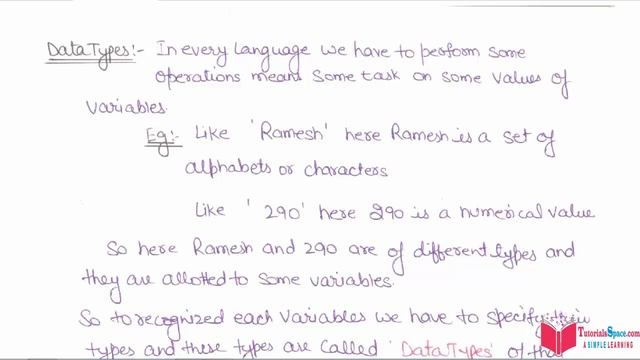 Data Types:- In every language we have to perform some
operations means some task on some values of
variables.
Eg:- Like 'Ramesh' here Ramesh is a set of
alphabets or characters
Like ' 290' here 290 is a numerical value
So here Ramesh and 290 are of different types and
they are allotted to some variables.
So to recognized each variables we have to specify their
types and these types are called 'Data Types' of that
TutorialsSpace.com
A SIMPLE LEARNING